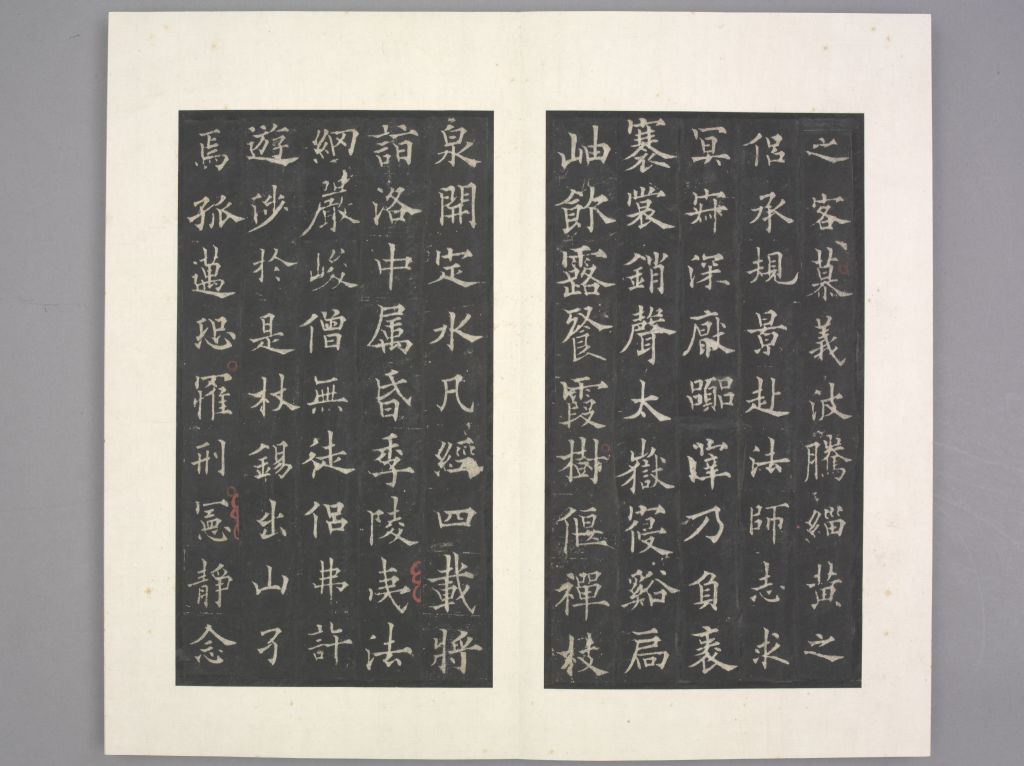 之客慕義波騰緇黃之
侶承規景赴法師志求
冥寂深厭囂滓乃負袠
褰裳銷聲太嶽寑谿扃
岫飲露飡霞樹偃禪枝
泉開定水凡經四載將
詣洛中属昏季陵夷法
網嚴峻僧無徒侶弗許
遊涉於是杖錫出山孑
焉孤邁恐罹刑憲靜念